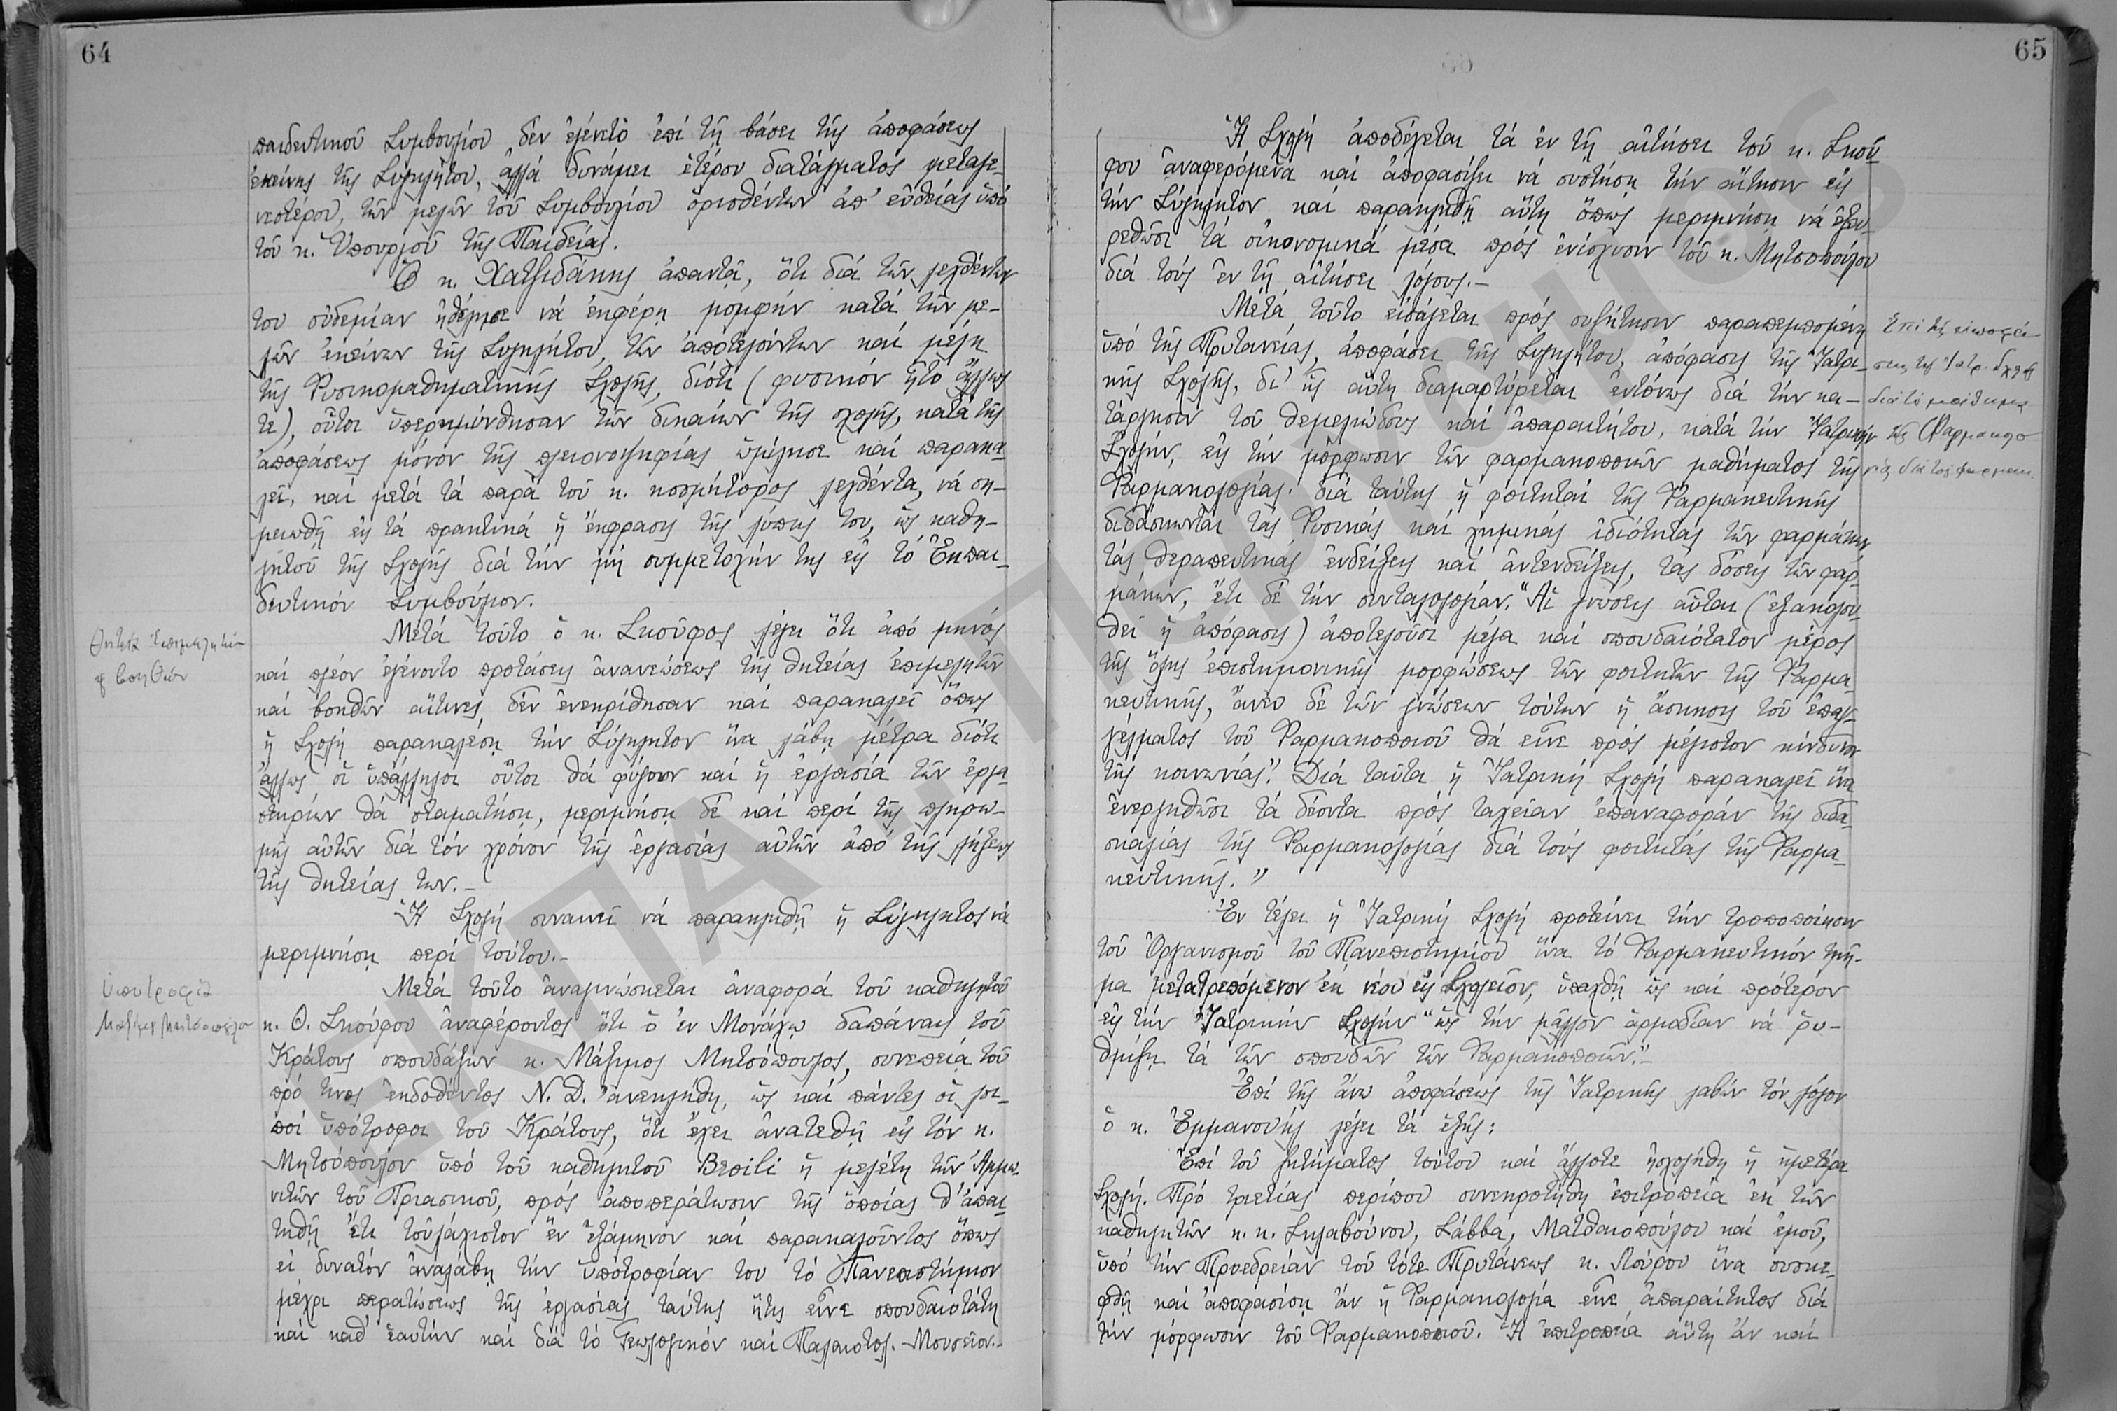 64
παιδευτικοῦ Συμβουλίου δὲν ἐγένετο ἐπὶ τῇ βάσει τῆς ἀποφάσεως
ἐκείνης τῆς Συγκλήτου, ἀλλὰ δυνάμει ἑτέρου διατάγματος μεταγε-
νεστέρου, τῶν μελῶν τοῦ Συμβουλίου ὁρισθέντων ἀπ' εὐθείας ὑπὸ
τοῦ κ. Ὑπουργοῦ τῆς Παιδείας.
Ὁ κ. Χατζιδάκης ἀπαντᾷ, ὅτι διὰ τῶν λεχθέντων
του οὐδεμίαν ἠθέλησε νὰ ἐκφέρῃ μομφὴν κατὰ τῶν με-
λῶν ἐκείνων τῆς Συγκλήτου, τῶν ἀποτελούντων καὶ μέλη
τῆς Φυσικομαθηματικῆς Σχολῆς, διότι (φυσικὸν ἦτο ἄλλως
τε), οὗτοι ὑπερημύνθησαν τῶν δικαίων τῆς σχολῆς, κατὰ τῆς
ἀποφάσεως μόνον τῆς πλειονοψηφίας ὡμίλησε καὶ παρακα-
λεῖ, καὶ μετὰ τὰ παρὰ τοῦ κ. κοσμήτορος λεχθέντα, νὰ ση-
μειωθῇ εἰς τὰ πρακτικὰ ἡ ἔκφρασις τῆς λύπης του, ὡς καθη-
γητοῦ τῆς Σχολῆς διὰ τὴν μὴ συμμετοχήν της εἰς τὸ Ἐκπαι-
δευτικὸν Συμβούλιον.
Θητεία Ἐπιμελητῶν
& βοηθῶν
Μετὰ τοῦτο ὁ κ. Σκοῦφος λέγει ὅτι ἀπὸ μηνὸς
καὶ πλέον ἐγένοντο προτάσεις ἀνανεώσεως τῆς θητείας ἐπιμελητῶν
καὶ βοηθῶν αἵτινες δὲν ἐνεκρίθησαν καὶ παρακαλεῖ ὅπως
ἡ Σχολὴ παρακαλέσῃ τὴν Σύγκλητον ἵνα λάβῃ μέτρα διότι
ἄλλως οἱ ὑπάλληλοι οὗτοι θὰ φύγουν καὶ ἡ ἐργασία τῶν ἐργα-
στηρίων θὰ σταματήσῃ, μεριμνήσῃ δὲ καὶ περὶ τῆς πληρω-
μῆς αὐτῶν διὰ τὸν χρόνον τῆς ἐργασίας αὐτῶν ἀπὸ τῆς λήξεως
τῆς θητείας των.-
Ἡ Σχολὴ συναινεῖ νὰ παρακληθῇ ἡ Σύγκλητος νὰ
μεριμνήσῃ περὶ τούτου.-
ὑποτροφία
Μαξίμου Μητσοπούλου
Μετὰ τοῦτο ἀναγινώσκεται ἀναφορὰ τοῦ καθηγητοῦ
κ. Θ. Σκούφου ἀναφέροντος ὅτι ὁ ἐν Μονάχῳ δαπάναις τοῦ
Κράτους σπουδάζων κ. Μάξιμος Μητσόπουλος, συνεπείᾳ τοῦ
πρό τινος ἐκδοθέντος Ν. Δ. ἀνεκλήθη, ὡς καὶ πάντες οἱ λοι-
ποὶ ὑπότροφοι τοῦ Κράτους, ὅτι ἔχει ἀνατεθῇ εἰς τὸν κ.
Μητσόπουλον ὑπὸ τοῦ καθηγητοῦ Broili ἡ μελέτη τῶν Ἀμμω-
νιτῶν τοῦ Τριασικοῦ, πρὸς ἀποπεράτωσιν τῆς ὁποίας θ' ἀπαι-
τηθῇ ἔτι τοὐλάχιστον ἓν ἑξάμηνον καὶ παρακαλοῦντος ὅπως
εἰ δυνατὸν ἀναλάβῃ τὴν ὑποτροφίαν του τὸ Πανεπιστήμιον
μέχρι περατώσεως τῆς ἐργασίας ταύτης ἥτις εἶνε σπουδαιοτάτη
καὶ καθ' ἑαυτὴν καὶ διὰ τὸ Γεωλογικὸν καὶ Παλαιοντολ. Μουσεῖον.-
65
Ἡ Σχολὴ ἀποδέχεται τὰ ἐν τῇ αἰτήσει τοῦ κ. Σκού-
φου ἀναφερόμενα καὶ ἀποφασίζει νὰ συστήσῃ τὴν αἴτησιν εἰς
τὴν Σύγκλητον καὶ παρακληθῇ αὕτη ὅπως μεριμνήσῃ νὰ ἐξευ-
ρεθῶσι τὰ οἰκονομικὰ μέσα πρὸς ἐνίσχυσιν τοῦ κ. Μητσοπούλου
διὰ τοὺς ἐν τῇ αἰτήσει λόγους.-
Μετὰ τοῦτο εἰσάγεται πρὸς συζήτησιν παραπεμπομένη
ὑπὸ τῆς Πρυτανείας, ἀποφάσει τῆς Συγκλήτου, ἀπόφασις τῆς Ἰατρι-
κῆς Σχολῆς, δι' ἧς αὕτη διαμαρτύρεται ἐντόνως διὰ τὴν κα-
τάργησιν τοῦ θεμελιώδους καὶ ἀπαραιτήτου, κατὰ τὴν Ἰατρικὴν
Σχολήν, εἰς τὴν μόρφωσιν τῶν φαρμακοποιῶν μαθήματος τῆς
Φαρμακολογίας. διὰ ταύτης οἱ φοιτηταὶ τῆς Φαρμακευτικῆς
διδάσκονται τὰς Φυσικὰς καὶ χημικὰς ἰδιότητας τῶν φαρμάκων
τὰς θεραπευτικὰς ἐνδείξεις καὶ ἀντενδείξεις, τὰς δόσεις τῶν φαρ-
μάκων, ἔτι δὲ τὴν συνταγολογίαν. "Αἱ γνώσεις αὗται (ἐξακολου-
θεῖ ἡ ἀπόφασις) ἀποτελοῦσι μέγα καὶ σπουδαιότατον μέρος
τῆς ὅλης ἐπιστημονικῆς μορφώσεως τῶν φοιτητῶν τῆς Φαρμα-
κευτικῆς, ἄνευ δὲ τῶν γνώσεων τούτων ἡ ἄσκησις τοῦ ἐπαγ-
γέλματος τοῦ Φαρμακοποιοῦ θὰ εἶνε πρὸς μέγιστον κίνδυνον
τῆς κοινωνίας". Διὰ ταῦτα ἡ Ἰατρικὴ Σχολὴ παρακαλεῖ ἵνα
ἐνεργηθῶσι τὰ δέοντα πρὸς ταχεῖαν ἐπαναφορὰν τῆς διδα-
σκαλίας τῆς Φαρμακολογίας διὰ τοὺς φοιτητὰς τῆς Φαρμα-
κευτικῆς."
Ἐν τέλει ἡ Ἰατρικὴ Σχολὴ προτείνει τὴν τροποποίησιν
τοῦ Ὀργανισμοῦ τοῦ Πανεπιστημίου ἵνα τὸ Φαρμακευτικὸν τμῆ-
μα μετατρεπόμενον ἐκ νέου εἰς Σχολεῖον, ὑπαχθῇ ὡς καὶ πρότερον
εἰς τὴν Ἰατρικὴν Σχολὴν "ὡς τὴν μᾶλλον ἁρμοδίαν νὰ ῥυ-
θμίζῃ τὰ τῶν σπουδῶν τῶν Φαρμακοποιῶν."-
Ἐπὶ τῆς ἄνω ἀποφάσεως τῆς Ἰατρικῆς λαβὼν τὸν λόγον
ὁ κ. Ἐμμανουὴλ λέγει τὰ ἑξῆς:
Ἐπὶ τοῦ ζητήματος τούτου καὶ ἄλλοτε ἠσχολήθη ἡ ἡμετέρα
Σχολή. Πρὸ τριετίας περίπου συνεκροτήθη ἐπιτροπεία ἐκ τῶν
καθηγητῶν κ. κ. Σκλαβούνου, Σάββα, Ματθαιοπούλου καὶ ἐμοῦ,
ὑπὸ τὴν Προεδρείαν τοῦ τότε Πρυτάνεως κ. Λούρου ἵνα συσκε-
φθῇ καὶ ἀποφασίσῃ ἂν ἡ Φαρμακολογία εἶνε ἀπαραίτητος διὰ
τὴν μόρφωσιν τοῦ Φαρμακοποιοῦ. Ἡ ἐπιτροπεία αὕτη ἂν καὶ
Ἐπὶ τῆς ἀποφά-
σεως τῆς Ἰατρ. Σχολῆς
διὰ τὸ μάθημα
τῆς Φαρμακολο-
γίας διὰ τοὺς φαρμακ.
ΕΚΠΑ ΠΕΡΓΑΜΟΣ